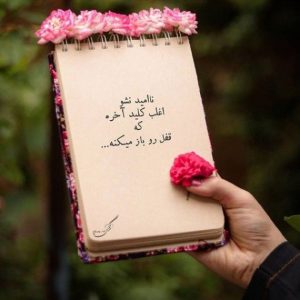 ناامید نشو
اغلب کلید آخره
که
قفل رو باز میکنه...